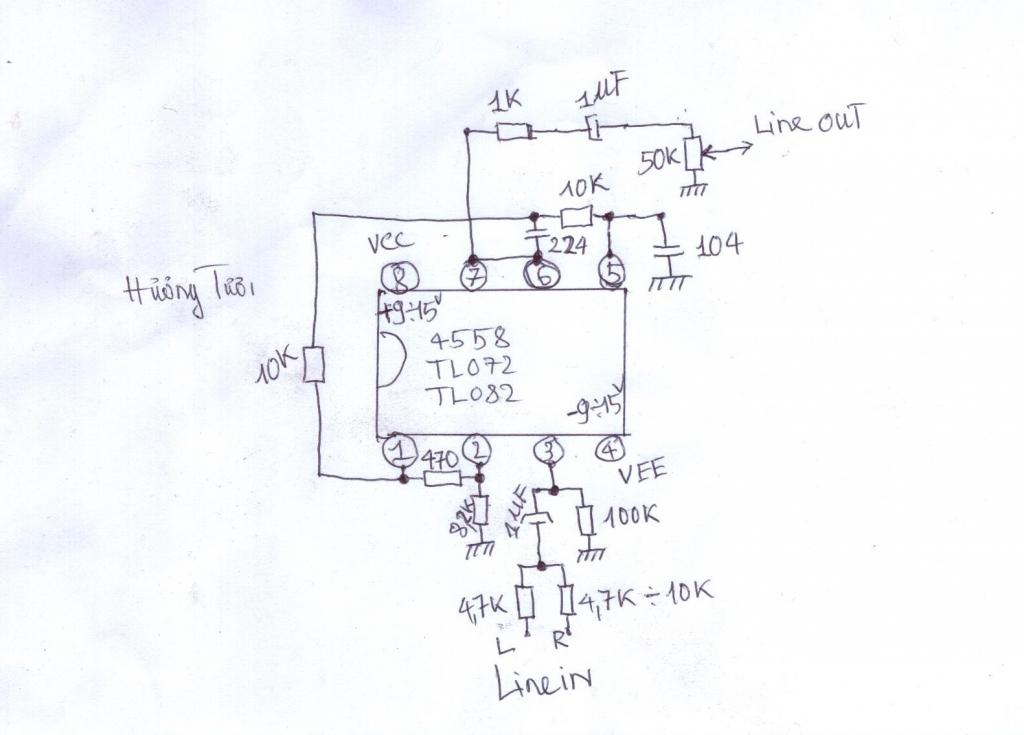 1K
1MF
Line OUT
50K
10K
VCC
224
104
8
7
6
5
Hưởng Tươi
+9÷15V
4558
TL072
TL082
-9÷15V
10K
1
470
2
3
4
VEE
8,2K
1MF
100K
4,7K
4,7K÷10K
L
R
Line in